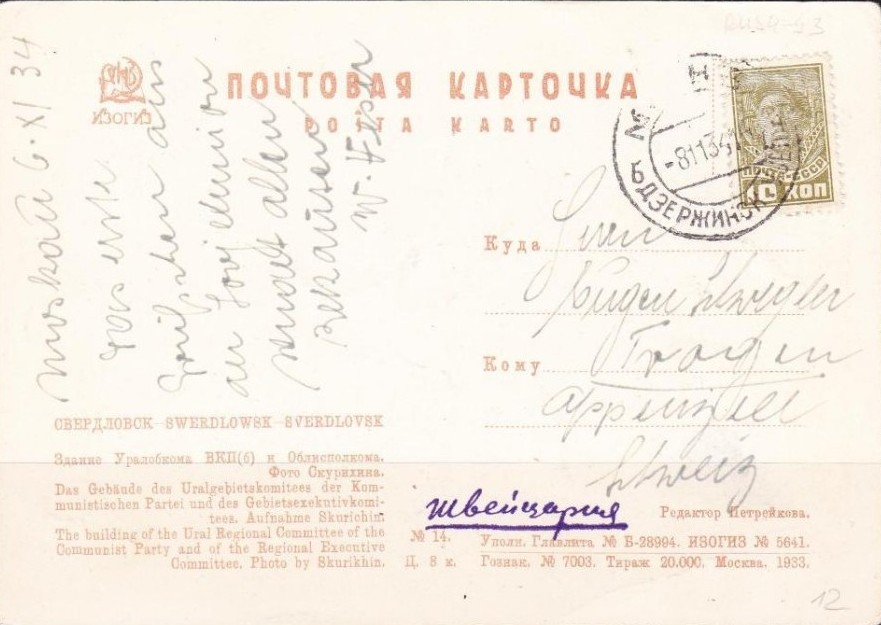 ПОЧТОВАЯ КАРТОЧКА
POŜTA KARTO
ИЗОГИЗ
Moskau 6. XI 34
das erste
aus
der Sovjetunion
sendet allen
Bekannten
W.
Б ДЗЕРЖИНСК
-81134
ПОЧТА СССР
10 КОП
Куда
Herrn
Eugen
Кому
Trogen
Appenzell
Schweiz
Швейцария
СВЕРДЛОВСК—SWERDLOWSK—SVERDLOVSK
Здание Уралобкома ВКП(б) и Облисполкома.
Фото Скурихина.
Das Gebäude des Uralgebietskomitees der Kom-
munistischen Partei und des Gebietsexekutivkomi-
tees. Aufnahme Skurichin.
The building of the Ural Regional Committee of the
Communist Party and of the Regional Executive
Committee. Photo by Skurikhin.
Редактор Петрейкова.
№ 14. Уполн. Главлита № Б-28994. ИЗОГИЗ № 5641.
Ц. 8 к. Гознак. № 7003. Тираж 20.000. Москва. 1933.
12